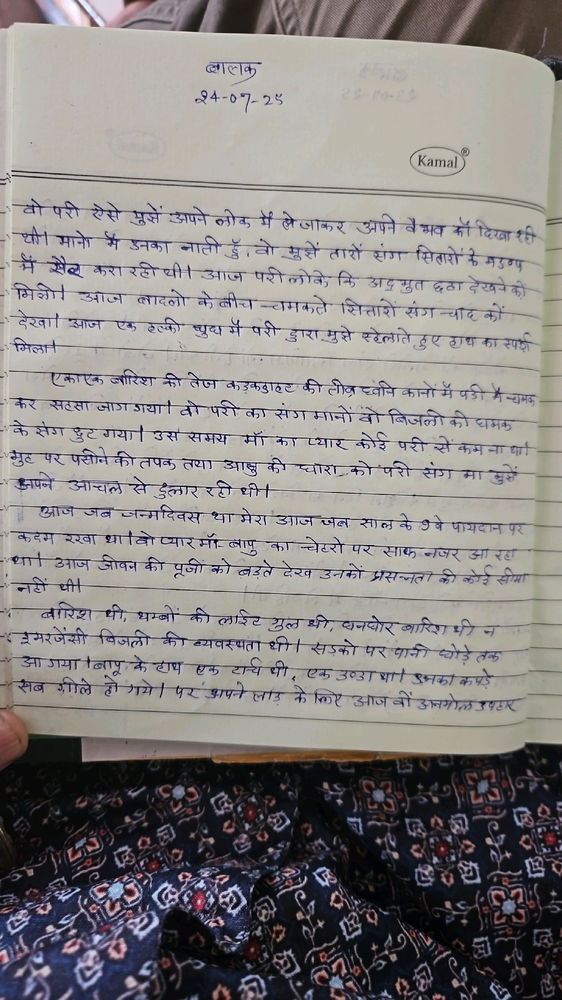 बालक
24-07-25
Kamal®
वो परी ऐसे मुझे अपने लोक में ले जाकर अपने वैभव कों दिखा रही
थी। मानो मैं उनका नाती हूँ, वो मुझें तारों संग सितारों के मडण्प
में सैर करा रही थी। आज परी लोके कि अद्भुत छठा देखने कों
मिली। आज बादलो के बीच चमकते सितारों संग चाद कों
देखा। आज एक हल्की धुधा में परी द्वारा मुझे सहेलाते हुए हाथ का स्पर्श
मिला।
एकाएक बारिश की तेज कड़कड़ाहट की तीव्र ध्वनि कानों में पडी मैं चमक
कर सहसा जाग गया। वो परी का संग मानों वो बिजली की धमक
के संग छुट गया। उस समय माँ का प्यार कोई परी सें कम ना था।
मुह पर पसीने की तपक तथा आशु की धारा को परी संग मा मुझें
अपने आचल से दुलार रही थी।
आज जब जन्मदिवस था मेरा आज जब साल के 9वे पायदान पर
कदम रखा था। वो प्यार माँ, बापु का चेहरो पर साफ नजर आ रहा
था। आज जीवन की पूजीं को बड़ते देख उनकों प्रसन्नता की कोई सीमा
नहीं थी।
बारिश थी, थम्बों की लाईट गुल थी, घनघोर बारिश थी न
इमरजेंसी बिजली की व्यवस्था थी। सड़को पर पानी घोड़े तक
आ गया। बापू के हाथ एक टार्च थी, एक डण्डा था। उनका कपड़े
सब गीले हो गये। पर अपने लाड़ के लिए आज वों अनमोल उपहार